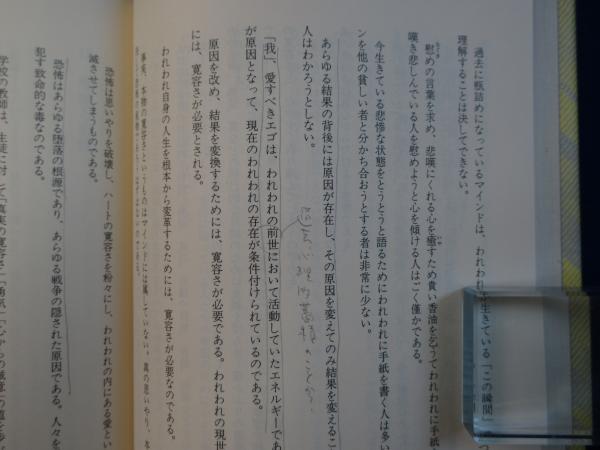 過去に瓶詰めになっているマインドは、われわれ
生きている「この瞬間」
理解することは決してできない。
慰めの言葉を求め、悲嘆にくれる心を癒すため貴い香油を乞うてわれわれに手紙
嘆き悲しんでいる人を慰めようと心を傾ける人はごく僅かである。
今生きている悲惨な状態をとうとうと語るためにわれわれに手紙を書く人は多い
ンを他の貧しい者と分かち合おうとする者は非常に少ない。
あらゆる結果の背後には原因が存在し、その原因を変えてのみ結果を変えるこ
人はわかろうとしない。
「我」、愛すべきエゴは、われわれの前世において活動していたエネルギーであ
が原因となって、現在のわれわれの存在が条件付けられているのである。
原因を改め、結果を変換するためには、寛容さが必要である。われわれの現世
には、寛容さが必要とされる。
われわれ自身の人生を根本から変革するためには、寛容さが必要なのである。
事実、本物の寛容さというものはマインドには属していない。真の思いやり、本
恐怖は思いやりを破壊し、ハートの寛容さを粉々にし、われわれの内にある愛とい
滅させてしまうものである。
恐怖はあらゆる堕落の根源であり、あらゆる戦争の隠された原因である。人々を
犯す致命的な毒なのである。
学校の教師は、生徒に対して「真実の寛容さ」「勇気」